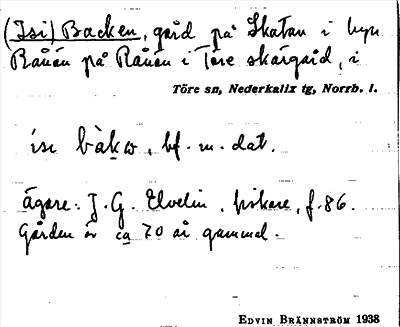 (Isi) Backen, gård på Skatan i byn
Rånön på Rånön i Töre skärgård, i
Töre sn, Nederkalix tg, Norrb. l.
isi bàkω, bf. m. dat.
ägare: J. G. Elvelin, fiskare, f. 86.
Gården är ca 70 år gammal.
EDVIN BRÄNNSTRÖM 1938